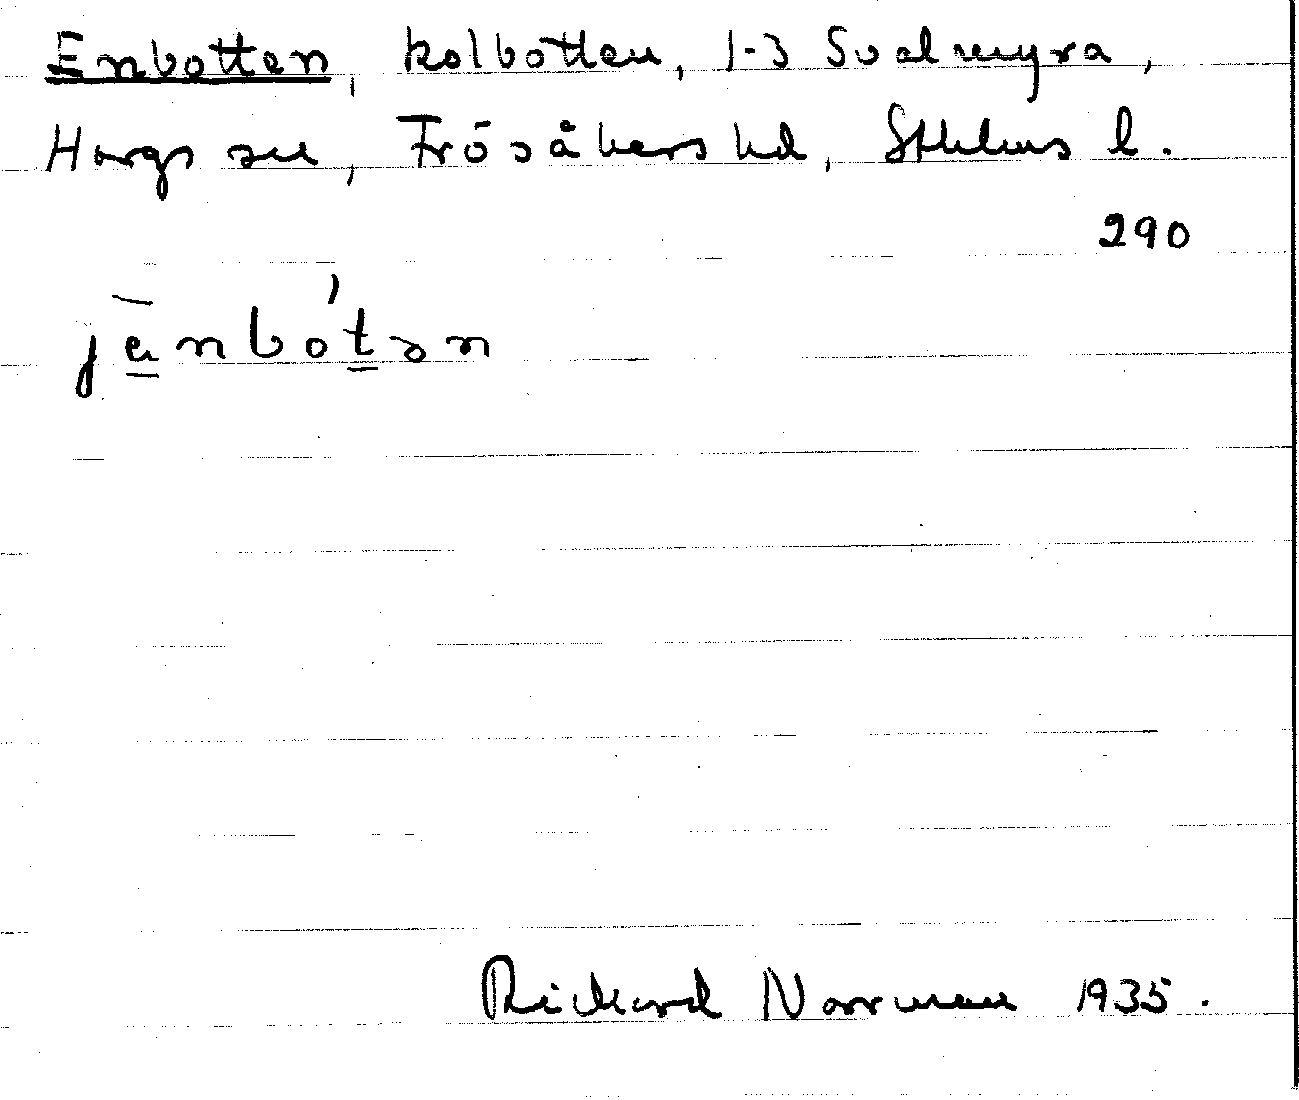 Enbotten, kolbotten, 1-3 Svalmyra,
Hargs sn, Frösåkers hd, Sthlms l.
290
jä̀nbo´tən
Rickard Norrman 1935.